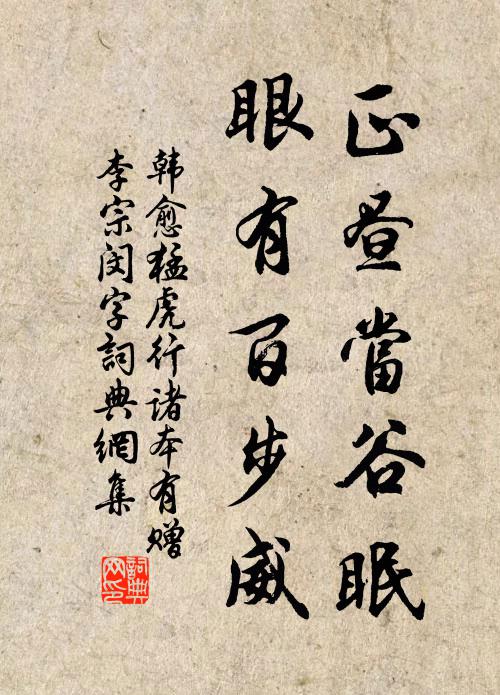 正昼當谷眠
眼有百步威
韩愈猛虎行诸本有赠
李宗闵字詞典網集
詞典
网印